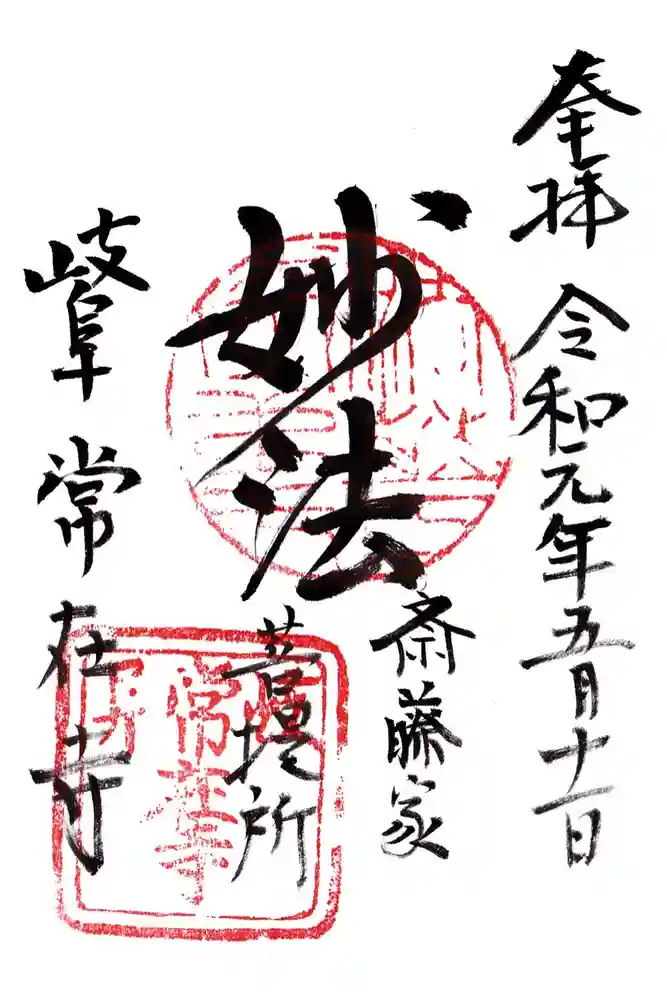 奉拝 令和元年五月十一日
妙法
斎藤家
菩提所
岐阜 常在寺
常在寺